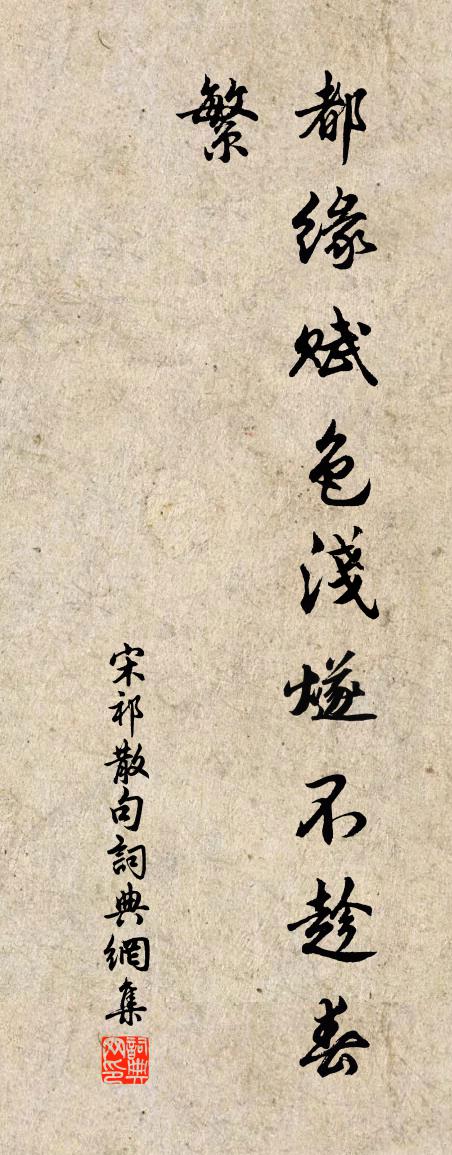 都缘赋色淺燧不趁春
繁
宋祁散句詞典網集
詞典网印